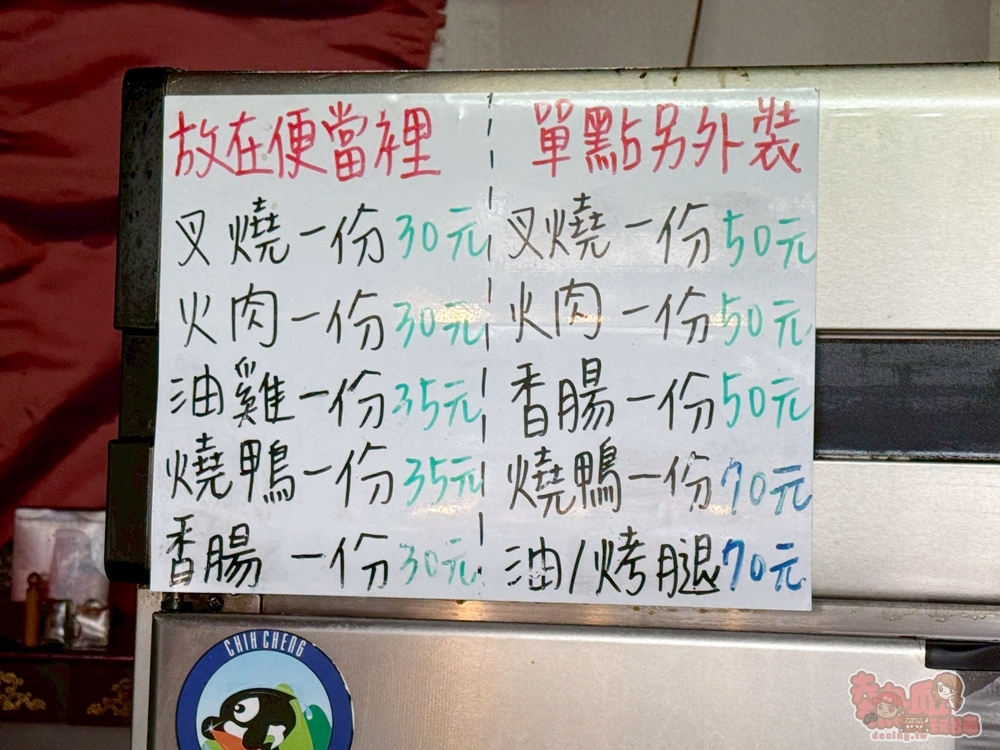 放在便當裡
叉燒一份30元
火肉一份30元
油雞一份35元
燒鴨一份35元
香腸一份30元
單點另外裝
叉燒一份50元
火肉一份50元
香腸一份50元
燒鴨一份70元
油/烤腿70元
CHIH CHENG
decing.tw